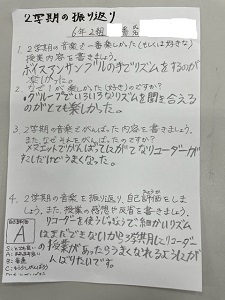 2学期の振り返り
6年2組 番 名
1. 2学期の音楽で一番楽しかった(もしくは好きな)
授業内容を書きましょう。
ボイスアンサンブルの手でリズムをするのが
楽しかった。
2. なぜ1が楽しかった(好き)のですか?
グループでいろいろなリズムを聞き合える
のがとても楽しかった。
3. 2学期の音楽でがんばった内容を書きましょう。
また、なぜそれをがんばったのですか?
メヌエットでがんばってにがてなリコーダーが
すこしだけどうまくなった。
4. 2学期の音楽を振り返り、自己評価をし
ましょう。また、授業の感想や反省を書きましょう。
A
リコーダーを使うじゅぎょうで細かいリズム
はまだできないから3学期にリコーダー
の授業があったらうまくなれるようにが
んばりたいです。